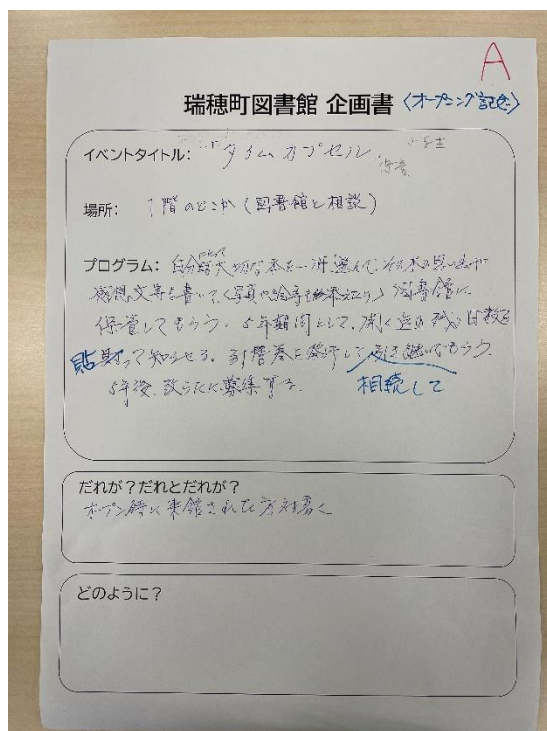 A
瑞穂町図書館 企画書 〈オープニング記念〉
イベントタイトル： タイムカプセル
場所： 1階のどこか（図書館と相談）
プログラム： 自分にとって大切な本を一冊選んで、その本の思い出や
感想文等を書いて、（写真や絵等も添えたり）図書館に
保管してもらう。5年期間として、開く迄の残り日数を
貼って知らせる。引替券を発行して引き継いでもらう。
相続して
5年後、改らたに募集する。
だれが？だれとだれが？
オープン時に来館された方対象に
どのように？